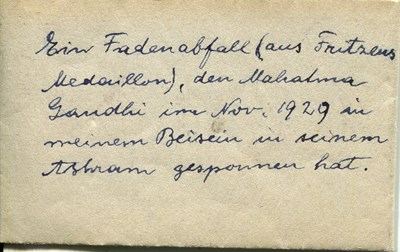 Ein Fadenabfall (aus Fritzens
Medaillon), den Mahatma
Gandhi im Nov. 1929 in
meinem Beisein in seinem
Ashram gesponnen hat.